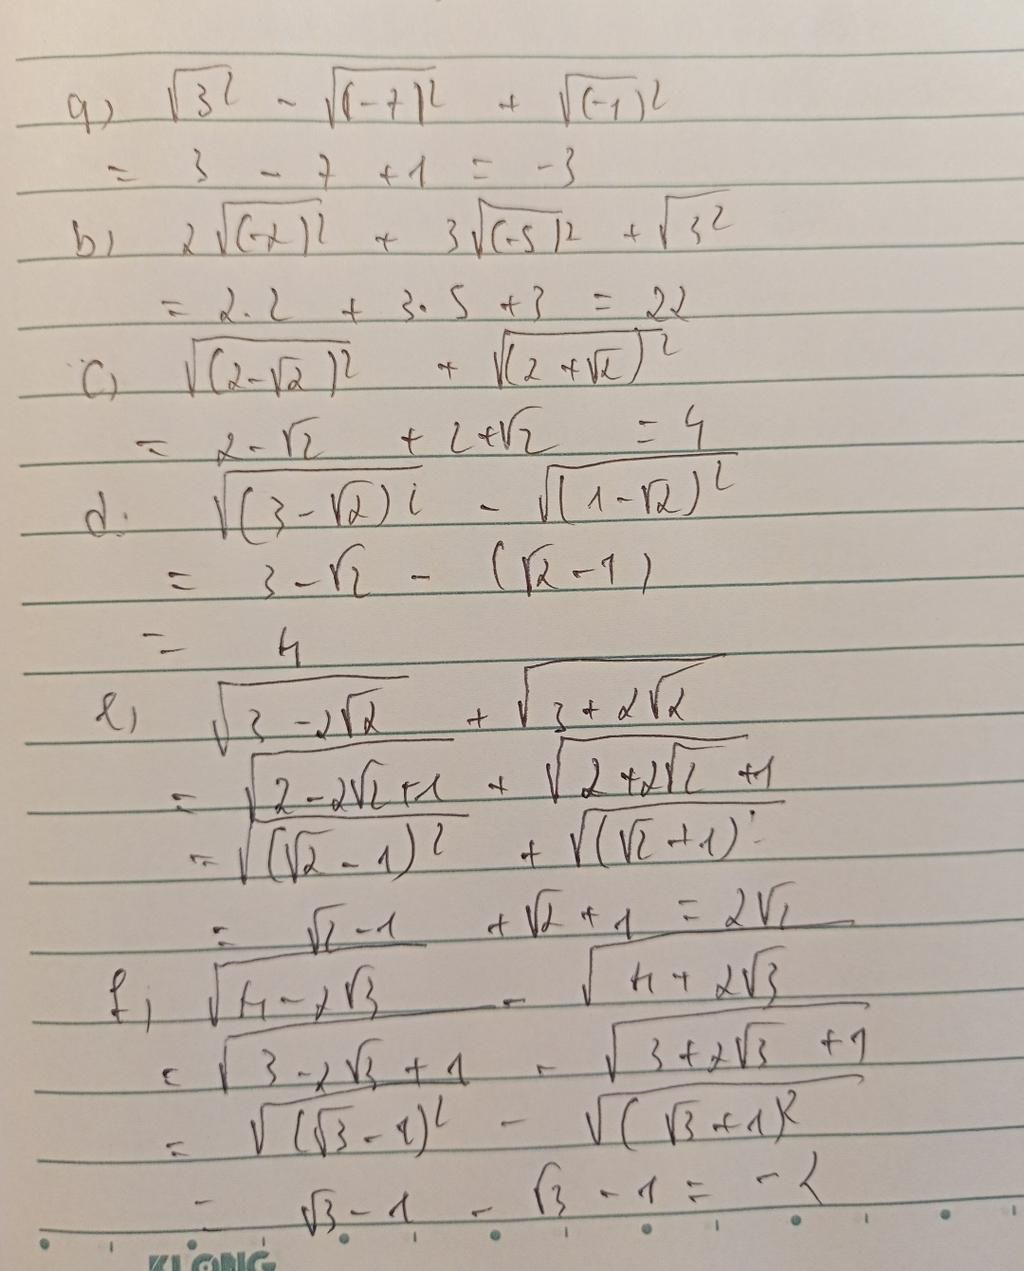 a) √3² - √(-7)² + √(-1)²
= 3 - 7 + 1 = -3
b) 2√(-2)² + 3√(-5)² + √3²
= 2.2 + 3.5 + 3 = 22
c) √(2-√2)² + √(2+√2)²
= 2-√2 + 2+√2 = 4
d. √(3-√2)² - √(1-√2)²
= 3-√2 - (√2-1)
= 4
e) √3-2√2 + √3+2√2
= √2-2√2+1 + √2+2√2+1
= √(√2-1)² + √(√2+1)²
= √2-1 + √2+1 = 2√2
f) √4-2√3 - √4+2√3
= √3-2√3+1 - √3+2√3+1
= √(√3-1)² - √(√3+1)²
= √3-1 - √3-1 = -2
KLONG